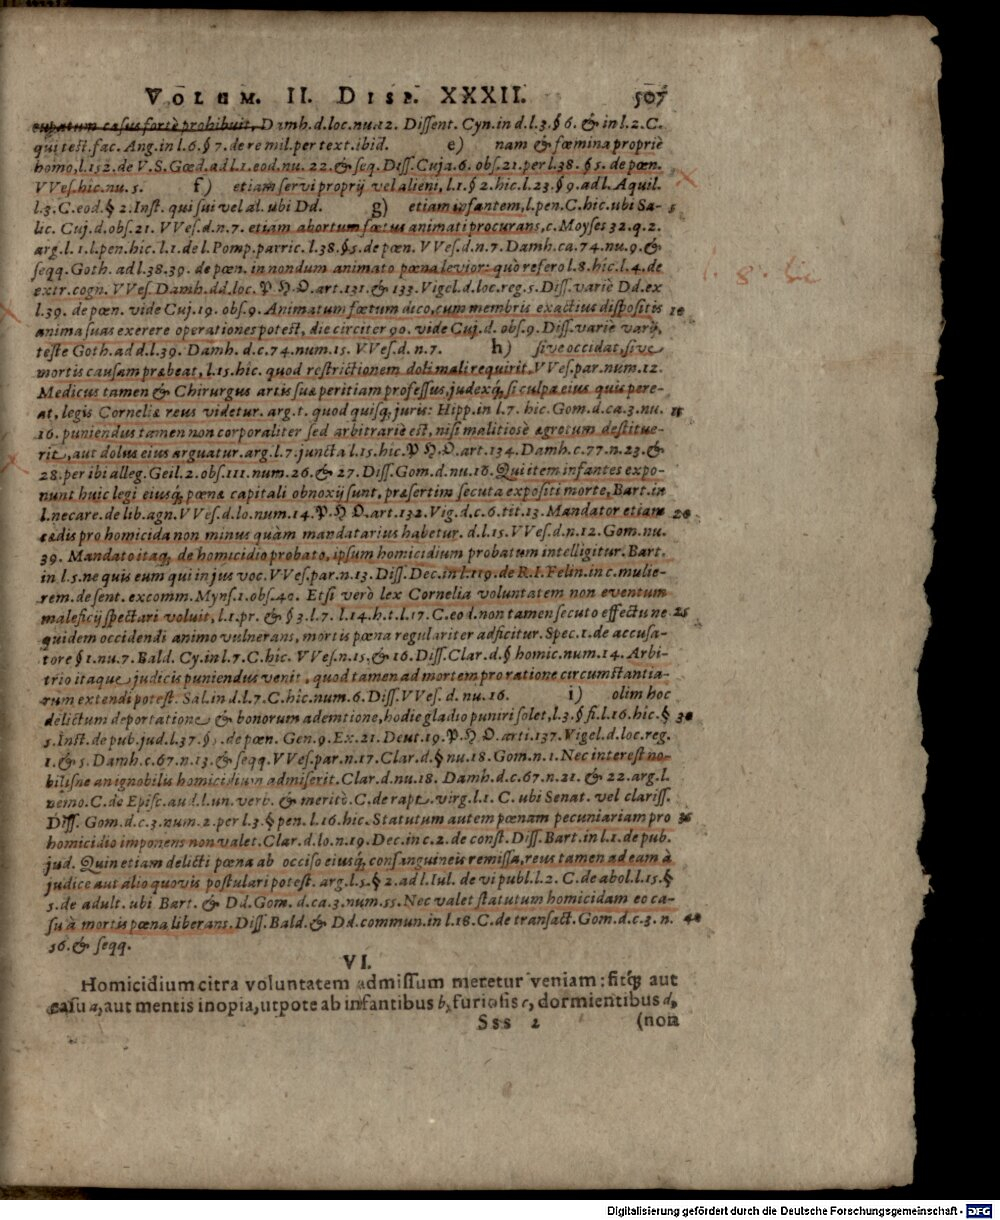 VOLUM. II. DISP. XXXII. 507
cupatum casus fortè prohibuit, Damh. d. loc. nu. 12. Dissent. Cyn. in d. l. 3. § 6. & in l. 2. C.
qui test. fac. Ang. in l. 6. § 7. de re mil. per text. ibid. e) nam & fœmina propriè
homo, l. 152. de V. S. Gœd. ad l. 1. eod. nu. 22. & seq. Diss. Cuja. 6. obs. 21. per l. 38. § 5. de pœn.
VVes. hic. nu. 5. f) etiam servi proprij vel alieni, l. 1. § 2. hic. l. 23. § 9. ad l. Aquil.
l. 3. C. eod. § 2. Inst. qui sui vel al. ubi Dd. g) etiam infantem, l. pen. C. hic. ubi Sa- 5
lic. Cuj. d. obs. 21. VVes. d. n. 7. etiam abortum fœtus animati procurans, c. Moyses 32. q. 2.
arg. l. 1. l. pen. hic. l. 1. de l. Pomp. parric. l. 38. § 5. de pœn. VVes. d. n. 7. Damh. ca. 74. nu. 9. &
seqq. Goth. ad l. 38. 39. de pœn. in nondum animato pœna levior: quò refero l. 8. hic. l. 4. de
l. 8. hic
extr. cogn. VVes. Damh. dd. loc. P. H. O. art. 131. & 133. Vigel. d. loc. reg. 5. Diss. variè Dd. ex
l. 39. de pœn. vide Cuj. 19. obs. 9. Animatum fœtum dico, cum membris exactius dispositis 10
anima suas exerere operationes potest, die circiter 90. vide Cuj. d. obs. 9. Diss. variè varij,
teste Goth. ad d. l. 39. Damh. d. c. 74. num. 15. VVes. d. n. 7. h) sive occidat, sive
mortis causam præbeat, l. 15. hic. quod restrictionem doli mali requirit. VVes. par. num. 12.
Medicus tamen & Chirurgus artis suæ peritiam professus, judexq́, si culpa eius quis pere-
at, legis Corneliæ reus videtur. arg. t. quod quisq, juris: Hipp. in l. 7. hic. Gom. d. ca. 3. nu. 15
16. puniendus tamen non corporaliter sed arbitrariè est, nisi malitiosè ægrotum destitue-
rit, aut dolus eius arguatur. arg. l. 7. juncta l. 15. hic. P. H. O. art. 134. Damh. c. 77. n. 23. &
28. per ibi alleg. Geil. 2. obs. 111. num. 26. & 27. Diss. Gom. d. nu. 16. Qui item infantes expo-
nunt huic legi eiusq́, pœnæ capitali obnoxij sunt, præsertim secuta expositi morte, Bart. in
l. necare. de lib. agn. VVes. d. lo. num. 14. P. H. O. art. 132. Vig. d. c. 6. tit. 13. Mandator etiam 20
cædis pro homicida non minus quàm mandatarius habetur. d. l. 15. VVes. d. n. 12. Gom. nu.
39. Mandato itaq, de homicidio probato, ipsum homicidium probatum intelligitur. Bart.
in l. 5. ne quis eum qui in jus voc. VVes. par. n. 13. Diss. Dec. in l. 119. de R. I. Felin. in c. mulie-
rem. de sent. excomm. Myns. 1. obs. 40. Etsi verò lex Cornelia voluntatem non eventum
maleficij spectari voluit, l. 1. pr. & § 3. l. 7. l. 14. h. t. l. 17. C. eod. non tamen secuto effectu ne 25
quidem occidendi animo vulnerans, mortis pœna regulariter adficitur. Spec. 1. de accusa-
tore § 1. nu. 7. Bald. Cy. in l. 7. C. hic. VVes. n. 15. & 16. Diss. Clar. d. § homic. num. 14. Arbi-
trio itaque judicis puniendus venit, quod tamen ad mortem pro ratione circumstantia-
rum extendi potest. Sal. in d. l. 7. C. hic. num. 6. Diss. VVes. d. nu. 16. i) olim hoc
delictum deportatione & bonorum ademtione, hodie gladio puniri solet, l. 3. § fi. l. 16. hic. § 30
5. Inst. de pub. jud. l. 37. § 1. de pœn. Gen. 9. Ex. 21. Deut. 19. P. H. O. arti. 137. Vigel. d. loc. reg.
1. & 5. Damh. c. 67. n. 13. & seqq. VVes. par. n. 17. Clar. d. § nu. 18. Gom. n. 1. Nec interest no-
bilisne an ignobilis homicidium admiserit. Clar. d. nu. 18. Damh. d. c. 67. n. 21. & 22. arg. l.
nemo. C. de Episc. aud. l. un. verb. & meritò. C. de rapt. virg. l. 1. C. ubi Senat. vel clariss.
Diss. Gom. d. c. 3. num. 2. per l. 3. § pen. l. 16. hic. Statutum autem pœnam pecuniariam pro 35
homicidio imponens non valet. Clar. d. lo. n. 19. Dec. in c. 2. de const. Diss. Bart. in l. 1. de pub.
jud. Quin etiam delicti pœna ab occiso eiusq́, consanguineis remissa, reus tamen ad eam à
judice aut alio quovis postulari potest. arg. l. 5. § 2. ad l. Iul. de vi publ. l. 2. C. de abol. l. 15. §
5. de adult. ubi Bart. & Dd. Gom. d. ca. 3. num. 55. Nec valet statutum homicidam eo ca-
su à mortis pœna liberans. Diss. Bald. & Dd. commun. in l. 18. C. de transact. Gom. d. c. 3. n. 40
56. & seqq.
VI.
Homicidium citra voluntatem admissum meretur veniam: fitq́ꝫ aut
casu a, aut mentis inopia, utpote ab infantibus b, furiosis c, dormientibus d,
Sss 2 (non
Digitalisierung gefördert durch die Deutsche Forschungsgemeinschaft - DFG